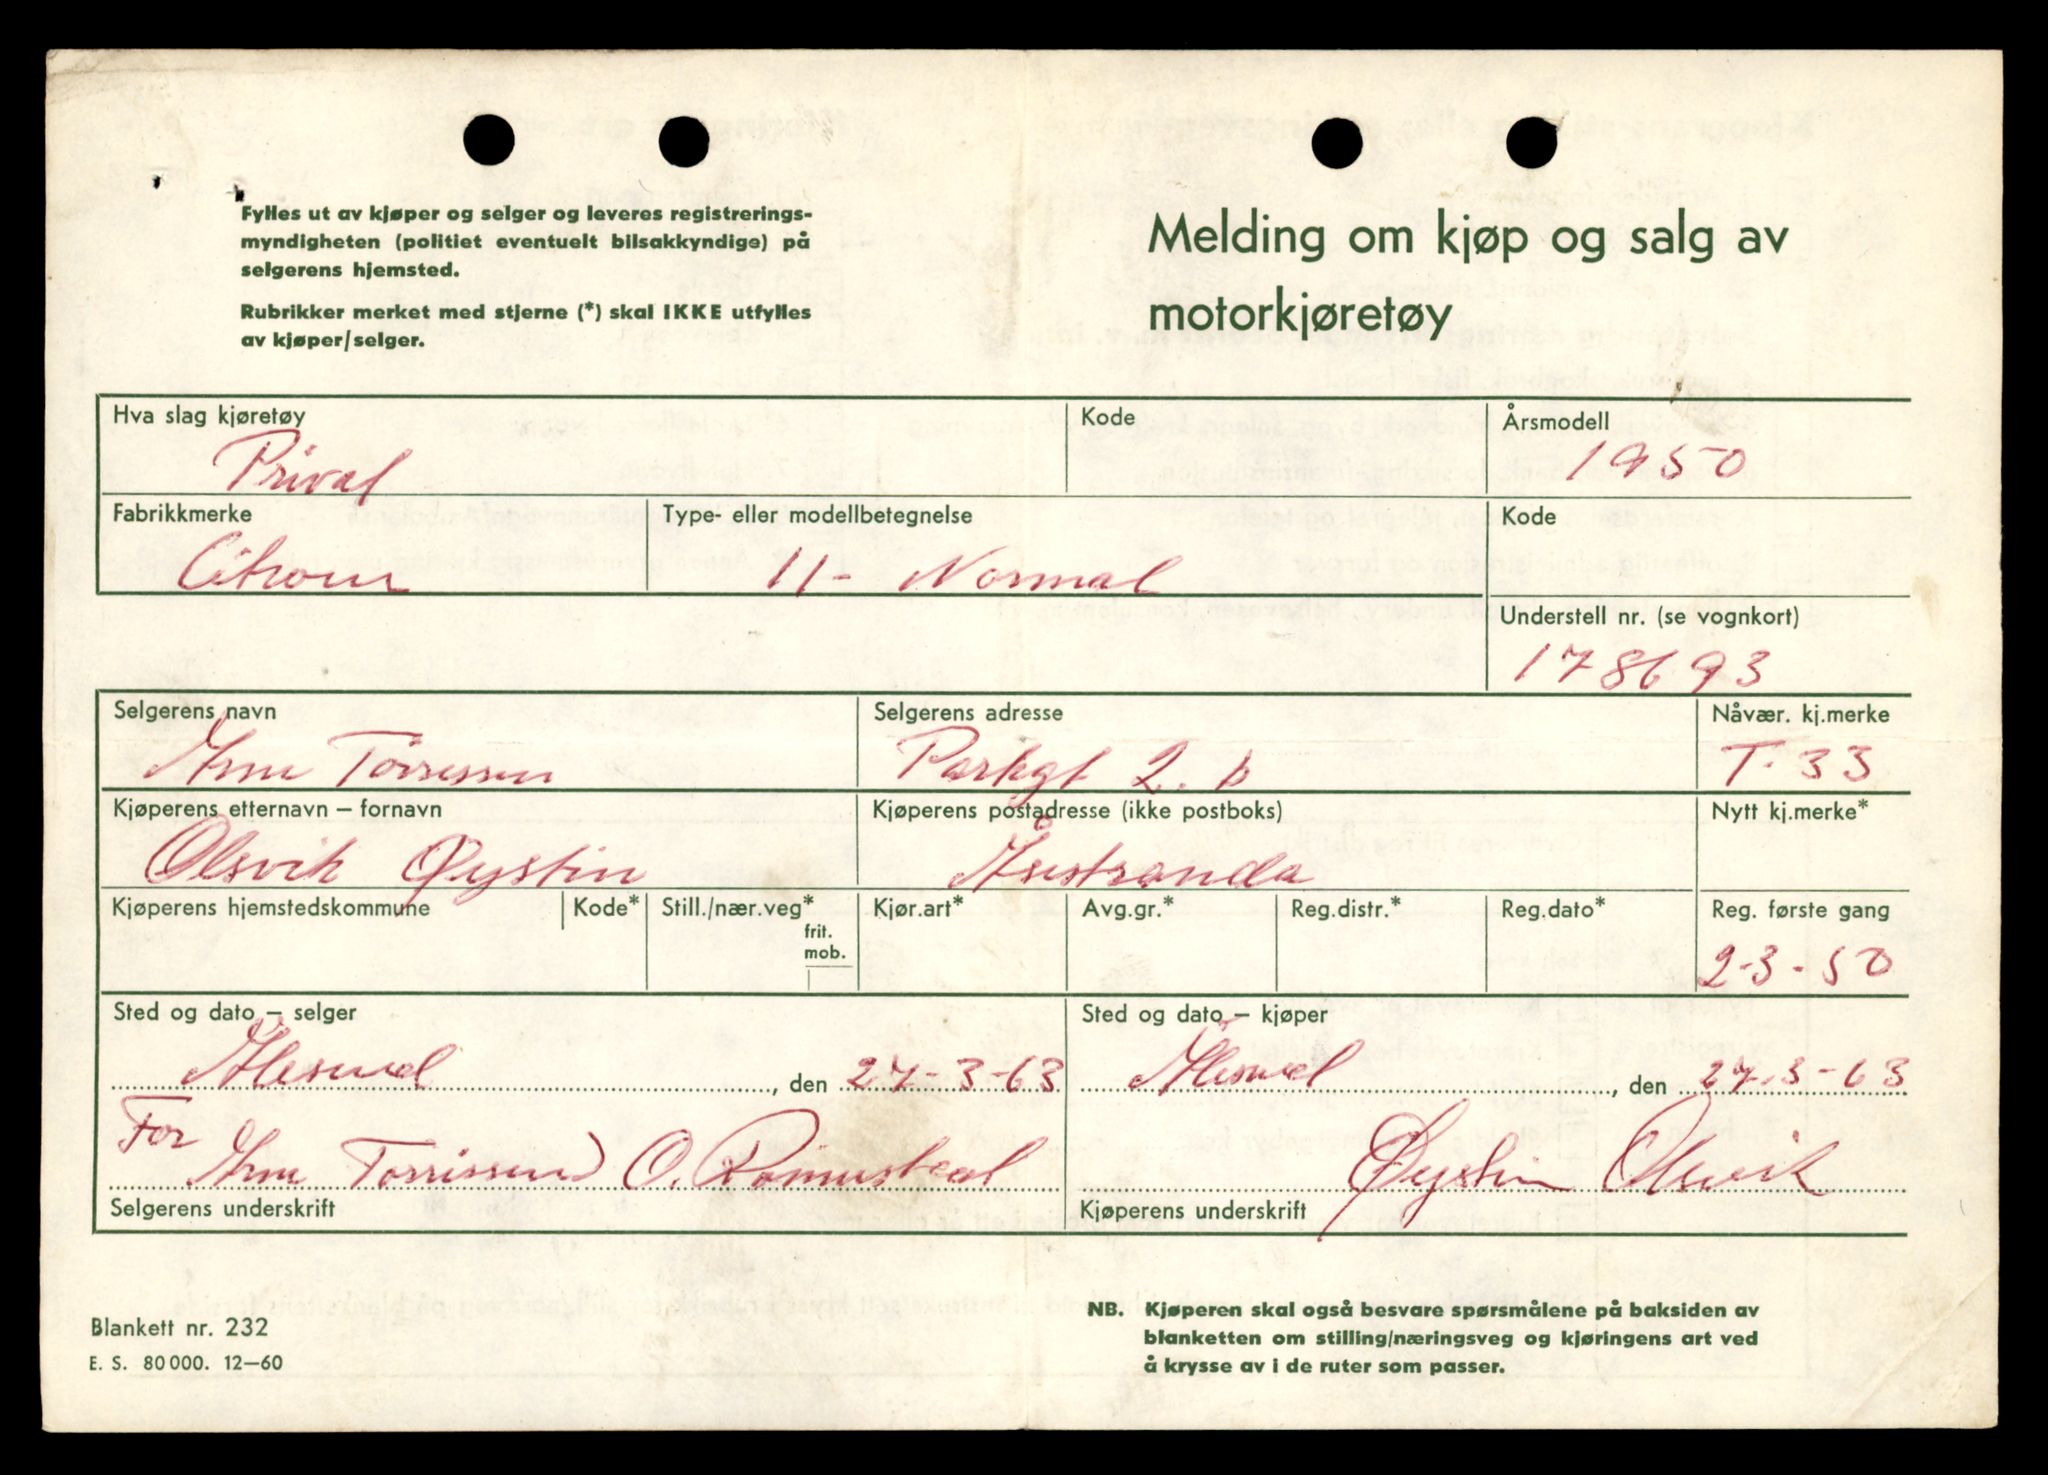 Fylles ut av kjøper og selger og leveres registrerings-
myndigheten (politiet eventuelt bilsakkyndige) på
selgerens hjemsted.
Rubrikker merket med stjerne (*) skal IKKE utfylles
av kjøper/selger.
Melding om kjøp og salg av
motorkjøretøy
Hva slag kjøretøy
Privat
Kode
Årsmodell
1950
Fabrikkmerke
Citroen
Type- eller modellbetegnelse
11- Normal
Kode
Understell nr. (se vognkort)
178693
Selgerens navn
Arne Torressen
Selgerens adresse
Parkgt 2. b
Nåvær. kj.merke
T-33
Kjøperens etternavn – fornavn
Olsvik Øystin
Kjøperens postadresse (ikke postboks)
Åsestranda
Nytt kj.merke*
Kjøperens hjemstedskommune
Kode*
Still./nær.veg*
frit.
mob.
Kjør.art*
Avg.gr.*
Reg.distr.*
Reg.dato*
Reg. første gang
2-3-50
Sted og dato – selger
Ålesund, den 27-3-63
For
Arne Torrissen) O.
Selgerens underskrift
Sted og dato – kjøper
Ålesund, den 27.3-63
Øystin Olsvik
Kjøperens underskrift
Blankett nr. 232
E. S. 80 000. 12–60
NB. Kjøperen skal også besvare spørsmålene på baksiden av
blanketten om stilling/næringsveg og kjøringens art ved
å krysse av i de ruter som passer.